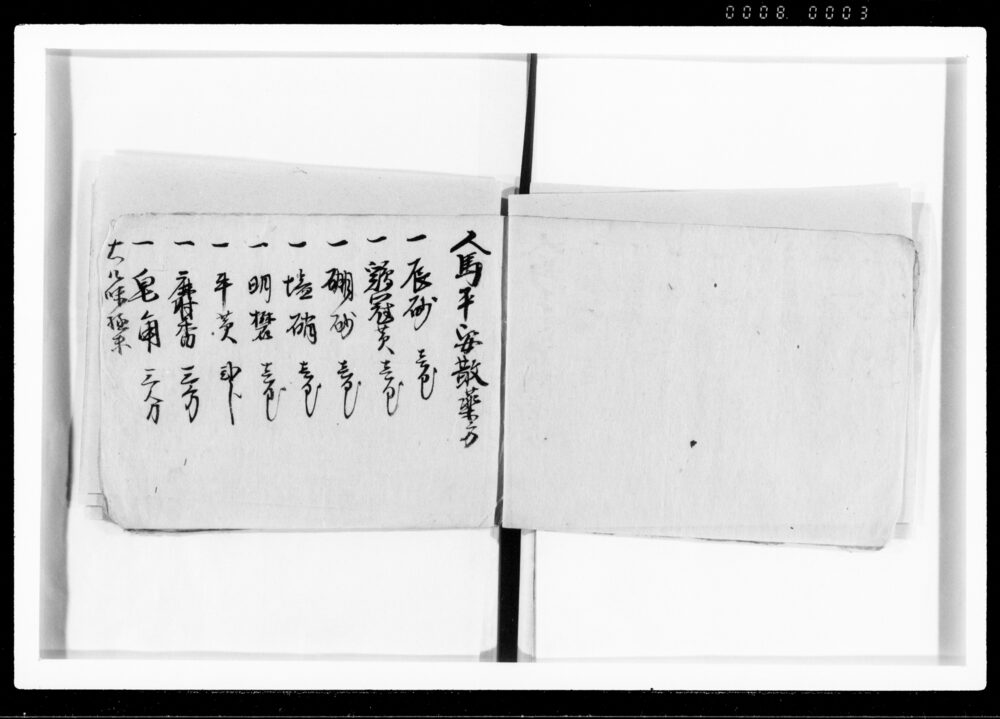 0008 0003
人馬平安散薬方
一 辰砂 壱匁
一 鷄冠黄 壱匁
一 硼砂 壱匁
一 塩硝 壱匁
一 明礬 壱匁
一 牛黄
一 麝香 三分
一 皂角 三分
右八味極末